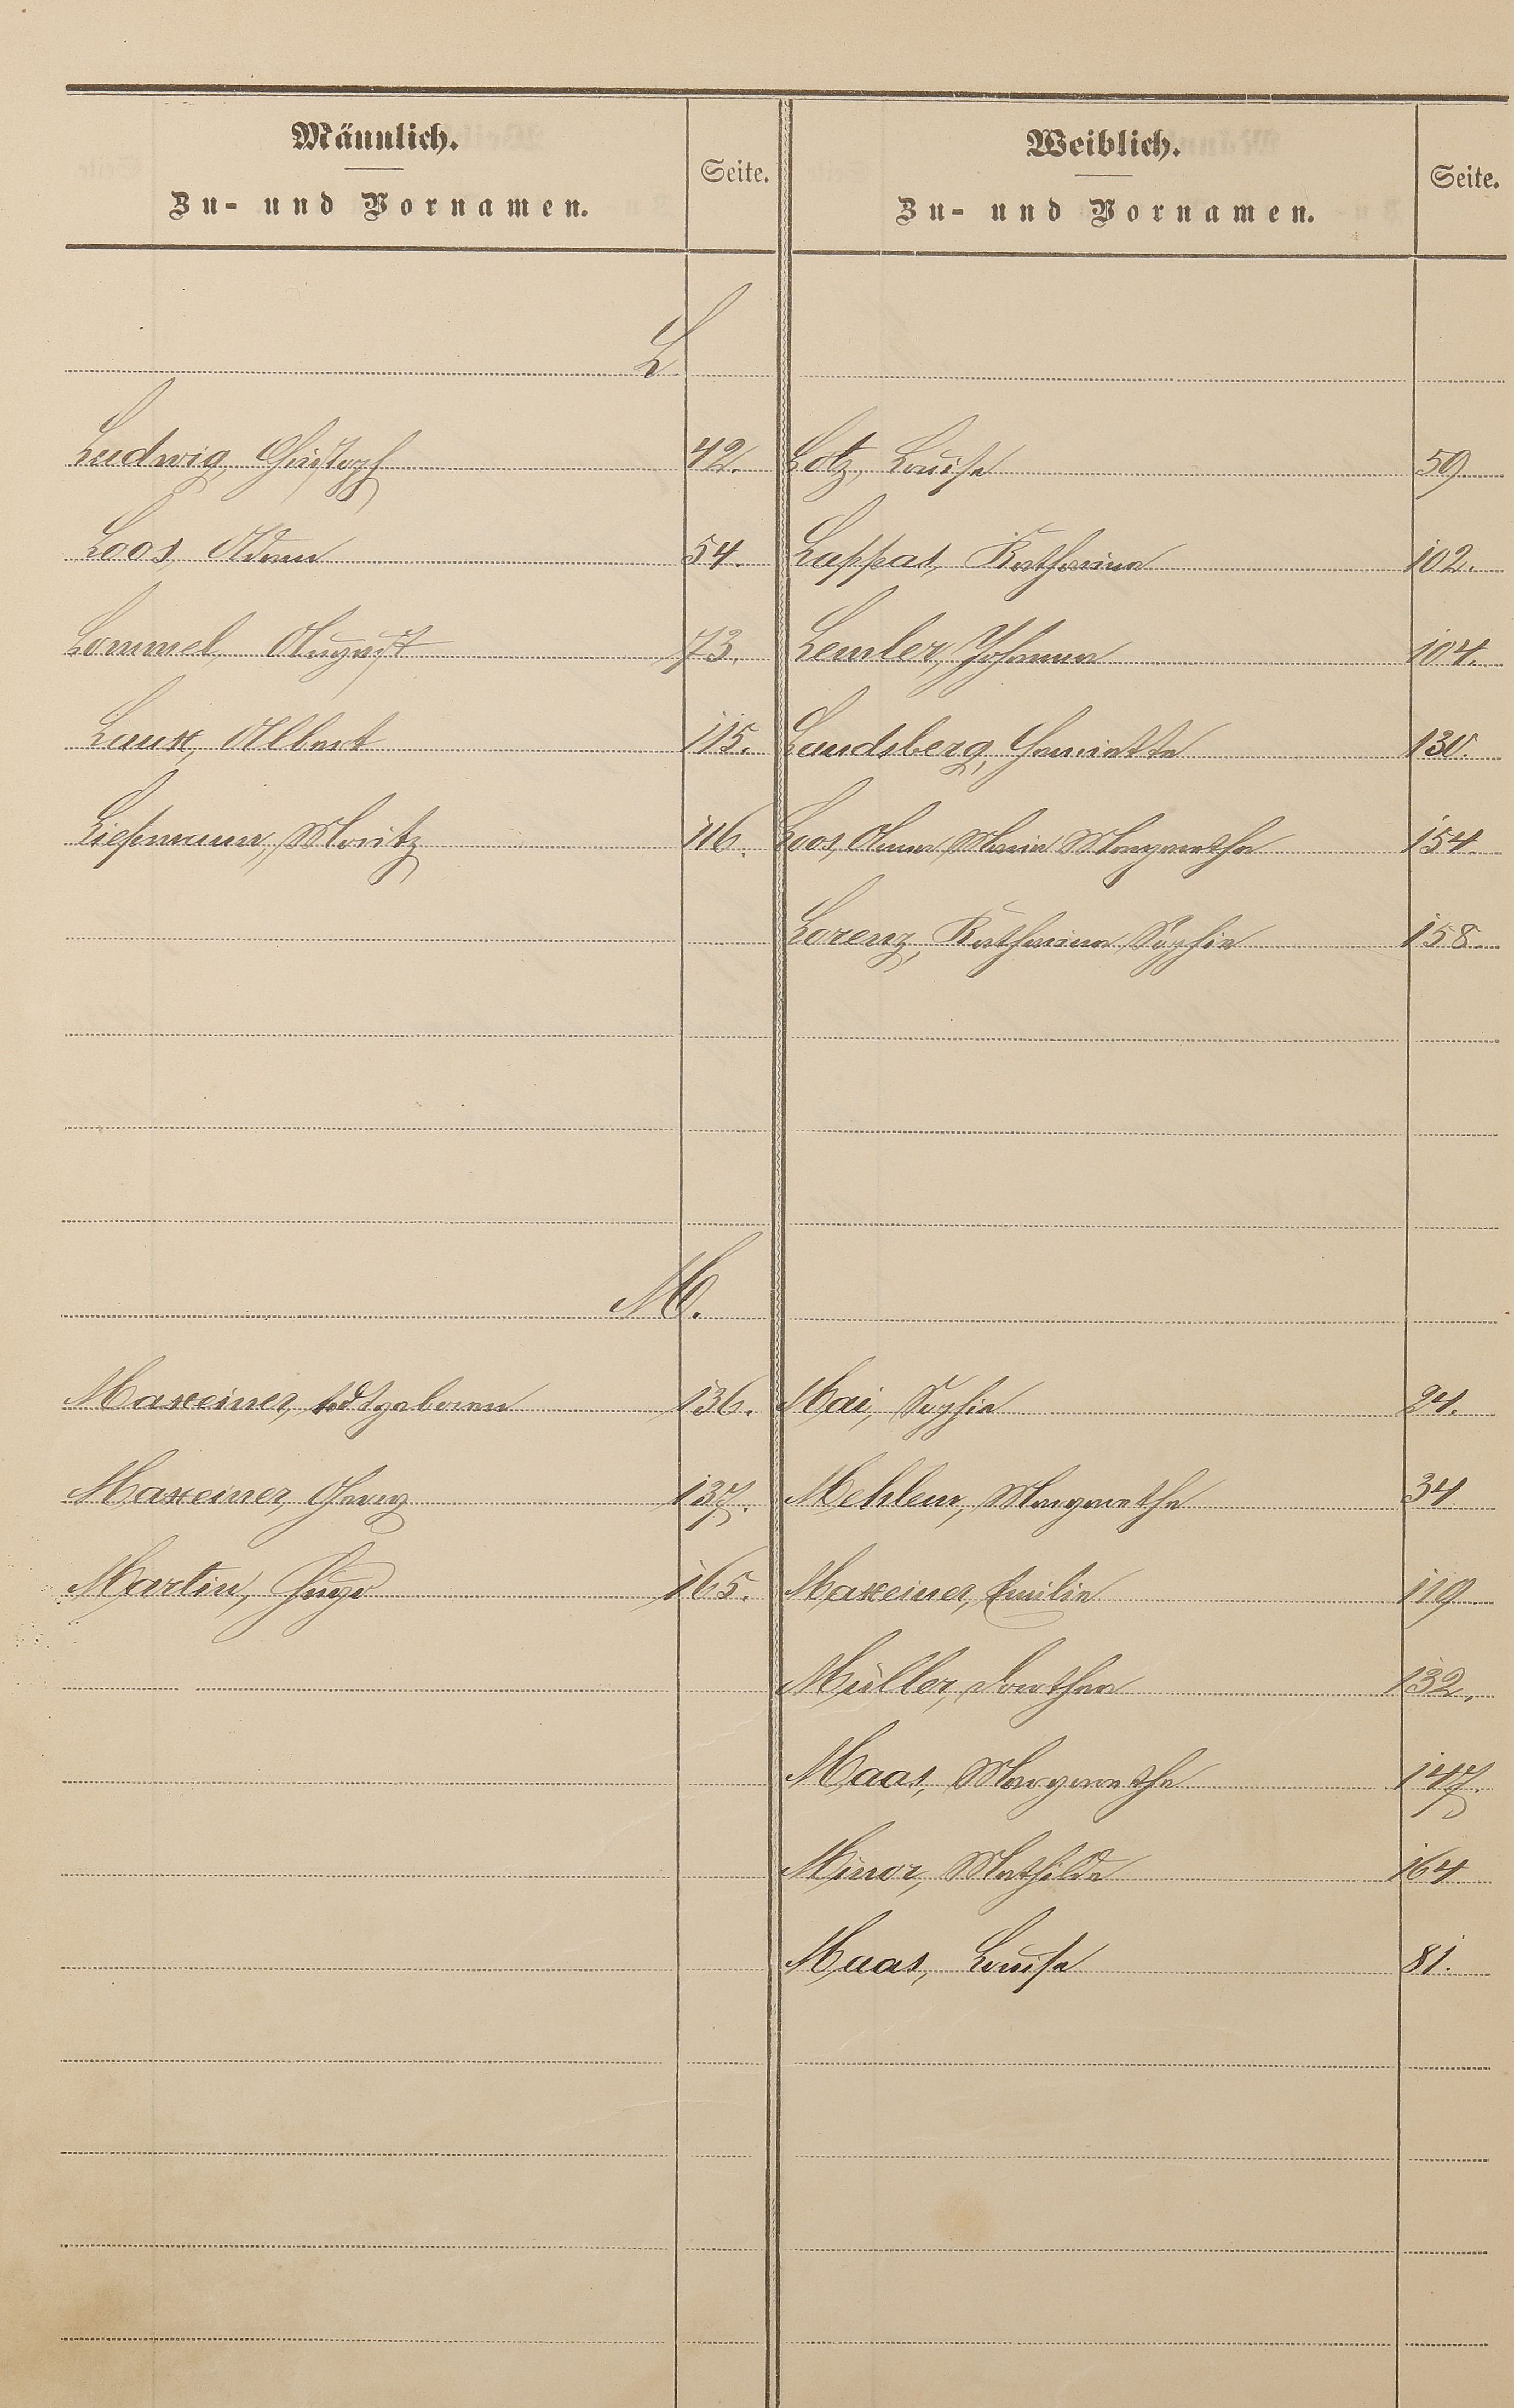 Männlich.
Zu- und Vornamen.
Seite.
Weiblich.
Zu- und Vornamen.
Seite.
L
Ludwig, Christoph 42. Lotz, Louise 59.
Loos, Adam 54. Lappas, Katharina 102.
Lommel, August 73. Lemler, Johanna 104.
Laux, Albert 115. Landsberg, Henriette 130.
Liepmann, Moritz 116. Loos, Anna Maria Margaretha 154.
Lorenz, Katharina Sophie 158.
M.
Maxeiner, todtgeboren 136. Mai, Sophie 24.
Maxeiner, Georg 137. Mehlem, Margarethe 34
Martin, Hugo 165. Maxeiner, Emilie 119
Müller, Dorothea 132.
Maas, Margarethe 147.
Minor, Mathilde 164
Maas, Louise 81.